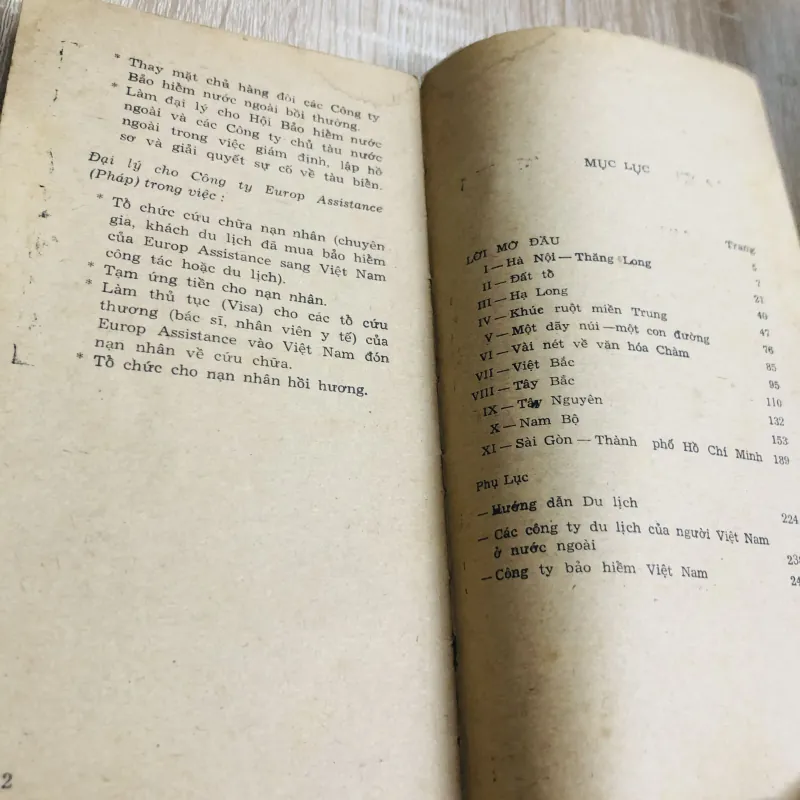 * Thay mặt chủ hàng đòi các Công ty
Bảo hiểm nước ngoài bồi thường.
* Làm đại lý cho Hội Bảo hiểm nước
ngoài và các Công ty chủ tàu nước
ngoài trong việc giám định, lập hồ
sơ và giải quyết sự cố về tàu biển.
Đại lý cho Công ty Europ Assistance
(Pháp) trong việc :
* Tổ chức cứu chữa nạn nhân (chuyên
gia, khách du lịch đã mua bảo hiểm
của Europ Assistance sang Việt Nam
công tác hoặc du lịch).
* Tạm ứng tiền cho nạn nhân.
* Làm thủ tục (Visa) cho các tổ cứu
thương (bác sĩ, nhân viên y tế) của
Europ Assistance vào Việt Nam đón
nạn nhân về cứu chữa.
* Tổ chức cho nạn nhân hồi hương.
2
MỤC LỤC
Trang
LỜI MỞ ĐẦU 5
I — Hà Nội — Thăng Long 7
II — Đất tổ 21
III — Hạ Long 40
IV — Khúc ruột miền Trung 47
V — Một dãy núi — một con đường 76
VI — Vài nét về văn hóa Chàm 85
VII — Việt Bắc 95
VIII — Tây Bắc 110
IX — Tây Nguyên 132
X — Nam Bộ 153
XI — Sài Gòn — Thành phố Hồ Chí Minh 189
Phụ Lục
— Hướng dẫn Du lịch 224
— Các công ty du lịch của người Việt Nam
ở nước ngoài 23
— Công ty bảo hiểm Việt Nam 24